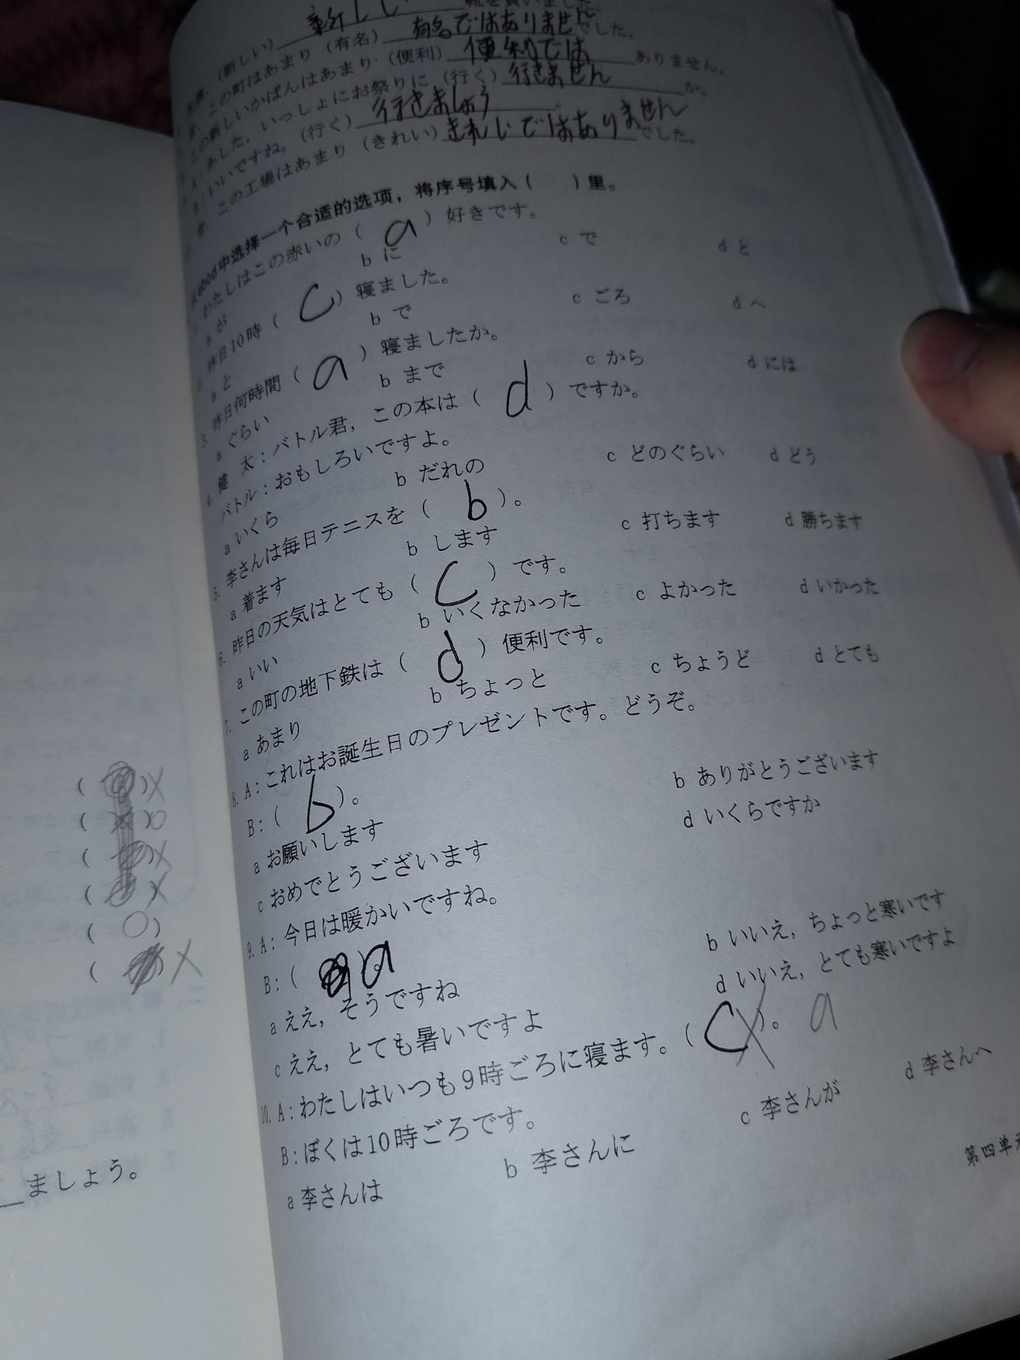 (新しい) 新しい 靴を買いました。
この町はあまり (有名) 有名ではありませんでした。
この新しいかばんはあまり (便利) 便利では ありません。
あした、いっしょにお祭りに (行く) 行きません か。
いいですね。(行く) 行きましょう
この工場はあまり (きれい) きれいではありません でした。
中选择一个合适的选项，将序号填入（ ）里。
わたしはこの赤いの ( a ) 好きです。
a が b に c で d と
2. 昨日10時 ( c ) 寝ました。
a と b で c ごろ d へ
3. 昨日何時間 ( a ) 寝ましたか。
a ぐらい b まで c から d には
4. 健 太：バトル君，この本は ( d ) ですか。
バトル：おもしろいですよ。
a いくら b だれの c どのぐらい d どう
5. 李さんは毎日テニスを ( b )。
a 着ます b します c 打ちます d 勝ちます
6. 昨日の天気はとても ( c ) です。
a いい b いくなかった c よかった d いかった
7. この町の地下鉄は ( d ) 便利です。
a あまり b ちょっと c ちょうど d とても
8. A：これはお誕生日のプレゼントです。どうぞ。
B：( b )。
a お願いします b ありがとうございます
c おめでとうございます d いくらですか
9. A：今日は暖かいですね。
B：( a )。
a ええ，そうですね b いいえ，ちょっと寒いです
c ええ，とても暑いですよ d いいえ，とても寒いですよ
10. A：わたしはいつも9時ごろに寝ます。( c )。 a
B：ぼくは10時ごろです。
a 李さんは b 李さんに c 李さんが d 李さんへ
第四单元
( ) X
( ) O
( ) X
( ) X
( O )
( ) X
ましょう。